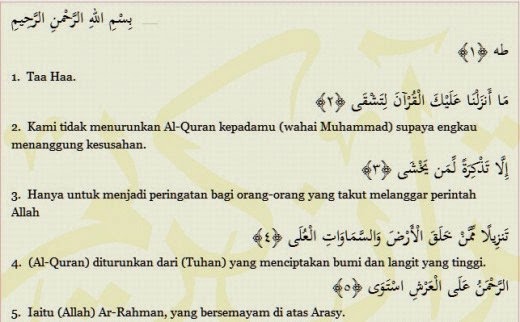 بِسْمِ اللهِ الرَّحْمٰنِ الرَّحِيْمِ
طه ﴿١﴾
1. Taa Haa.
مَا أَنزَلْنَا عَلَيْكَ الْقُرْآنَ لِتَشْقَى ﴿٢﴾
2. Kami tidak menurunkan Al-Quran kepadamu (wahai Muhammad) supaya engkau
menanggung kesusahan.
إِلَّا تَذْكِرَةً لِّمَن يَخْشَى ﴿٣﴾
3. Hanya untuk menjadi peringatan bagi orang-orang yang takut melanggar perintah
Allah
تَنزِيلًا مِّمَّنْ خَلَقَ الْأَرْضَ وَالسَّمَاوَاتِ الْعُلَى ﴿٤﴾
4. (Al-Quran) diturunkan dari (Tuhan) yang menciptakan bumi dan langit yang tinggi.
الرَّحْمَنُ عَلَى الْعَرْشِ اسْتَوَى ﴿٥﴾
5. Iaitu (Allah) Ar-Rahman, yang bersemayam di atas Arasy.